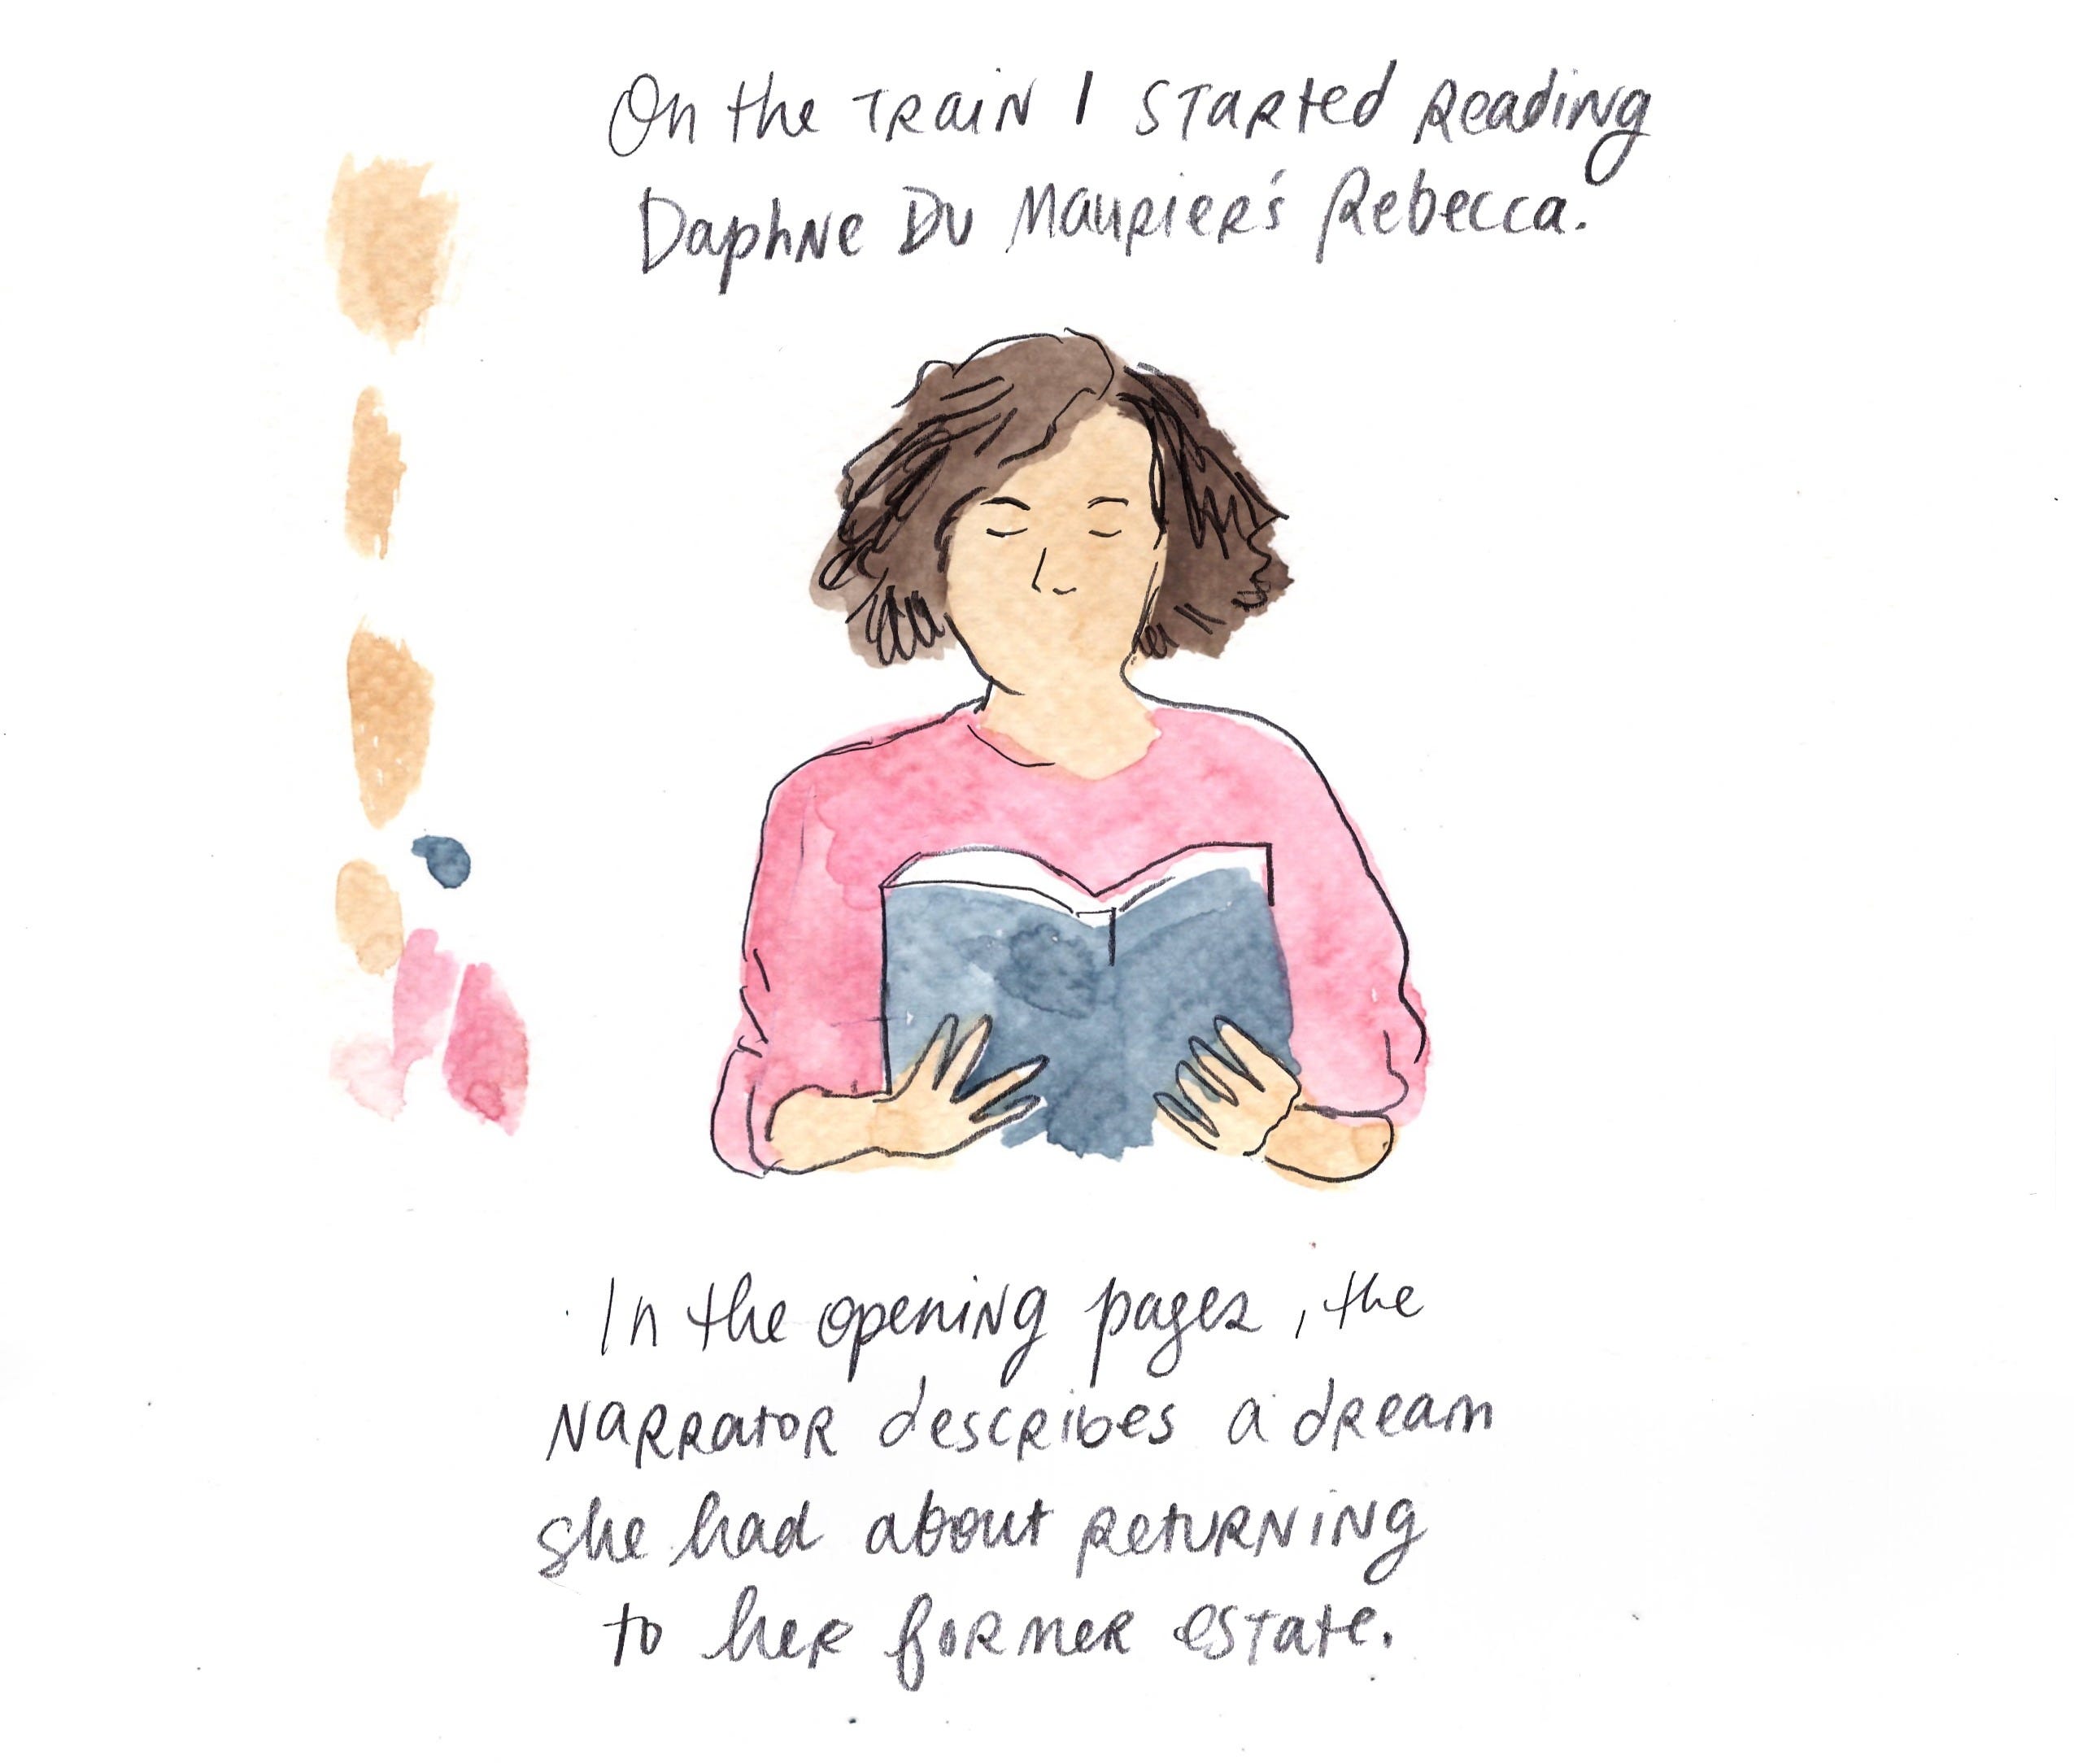 On the train I started reading
Daphne Du Maurier's Rebecca.
In the opening pages, the
narrator describes a dream
she had about returning
to her former estate.